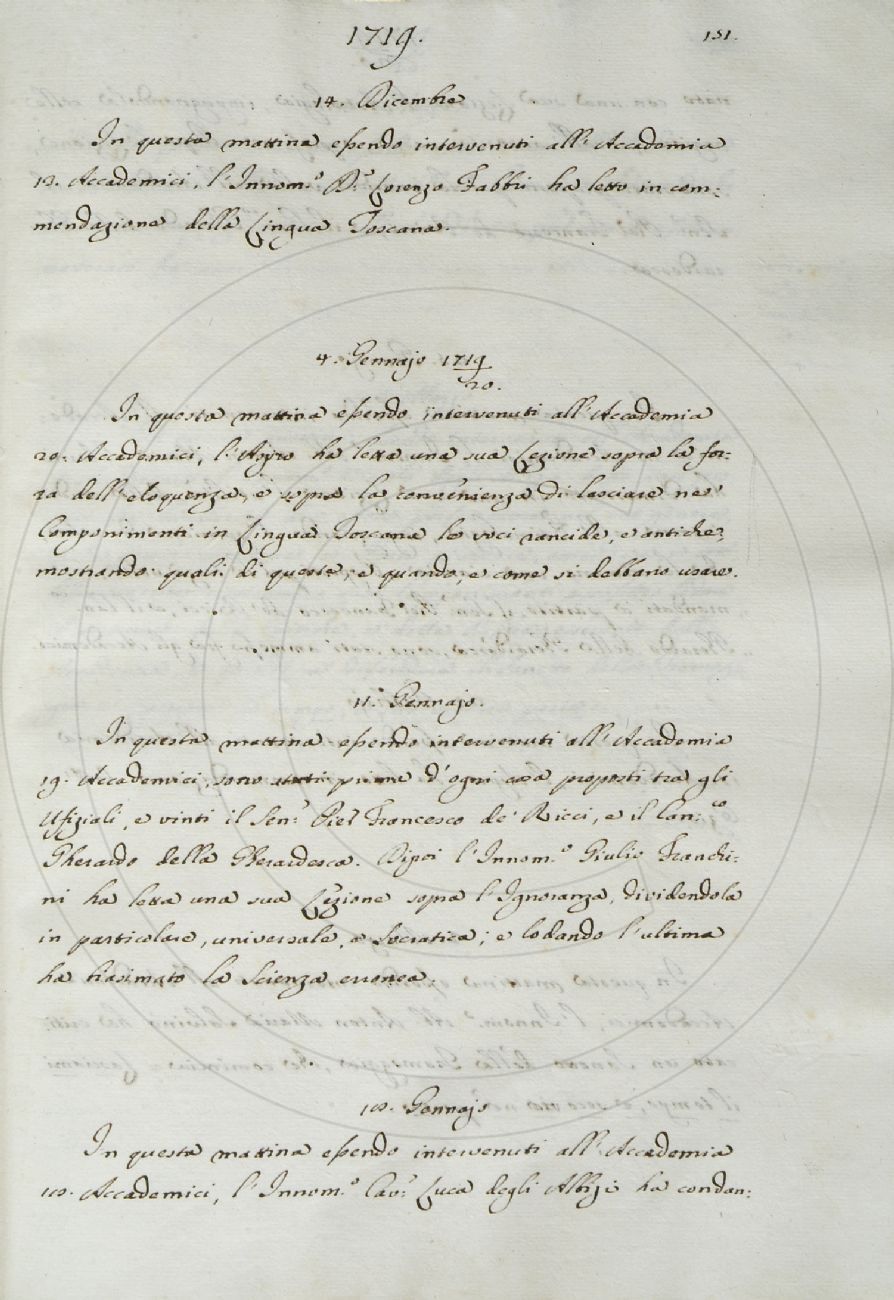 1719.
151.
14. Dicembre
In questa mattina essendo intervenuti all'Accademia
18. Accademici, l'Innom.º D.r Lorenzo Fabbri ha letto in com-
mendazione della Lingua Toscana.
4. Gennajo 1719/20.
In questa mattina essendo intervenuti all'Accademia
20. Accademici, l'Agiro ha letta una sua Lezione sopra la for-
za dell'eloquenza, e sopra la convenienza di lasciare ne'
Componimenti in Lingua Toscana le voci rancide, e antiche,
mostrando quali di queste, e quando, e come si debbano usare.
11. Gennajo.
In questa mattina essendo intervenuti all'Accademia
19. Accademici, sono stati prima d'ogni cosa proposti tra gli
Ufiziali, e vinti il Sen.r Pier Francesco de' Ricci, e il Can.co
Gherardo della Gherardesca. Dipoi l'Innom.º Giulio Franchi-
ni ha letta una sua Lezione sopra l'Ignoranza, dividendola
in particolare, universale, e Socratica; e lodando l'ultima
ha biasimato la Scienza erronea.
18. Gennajo
In questa mattina essendo intervenuti all'Accademia
18. Accademici, l'Innom.º Cav.r Luca degli Albizi ha condan-